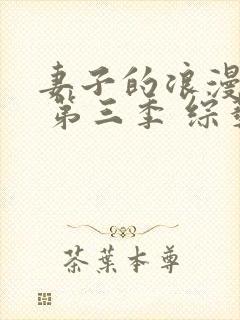 妻子的浪漫
第三季 综
茶葉本尊